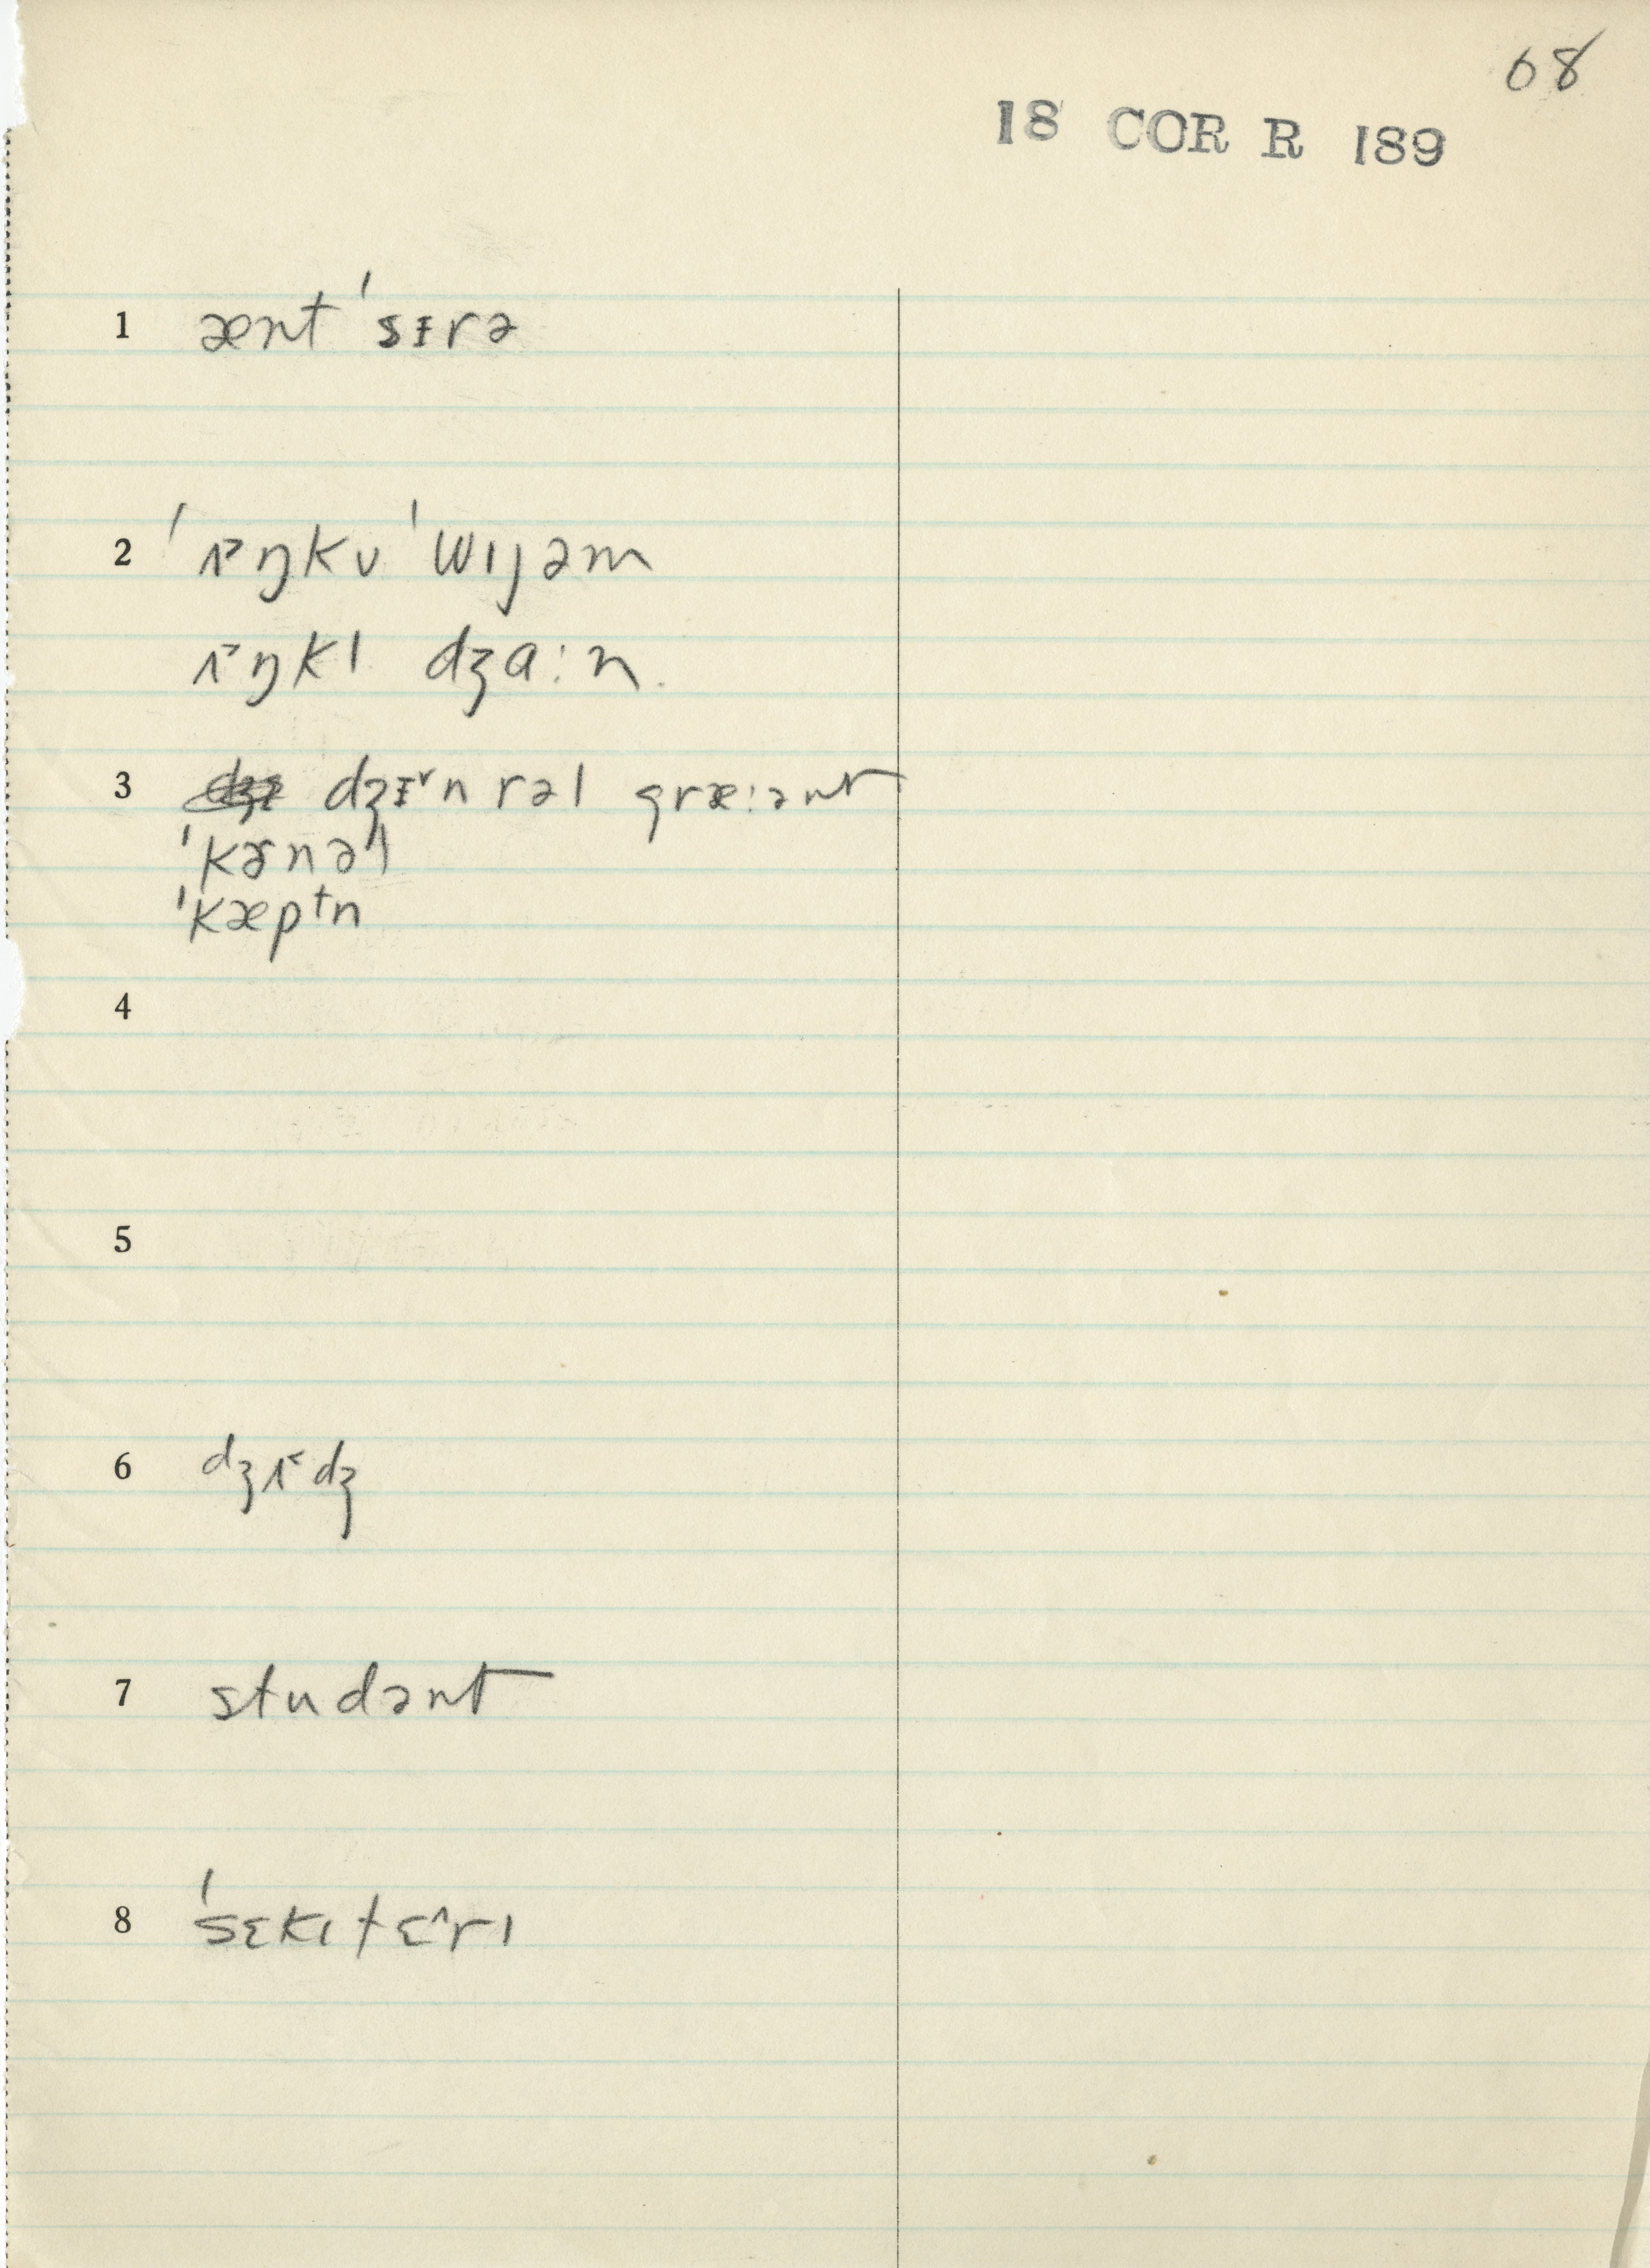 68
18 COR R 189
1 ænt ˈsɪ̵rə
2 ˈʌ˃ŋkʊ ˈwɪjəm
ʌ˃ŋkl dʒɑːn
3 dʒɪ̵˅nrəl græːənt
ˈkɝnəl
ˈkæptn
4
5
6 dʒʌ˂dʒ
7 studənt
8 ˈsɛkɪtɛ˄rɪ